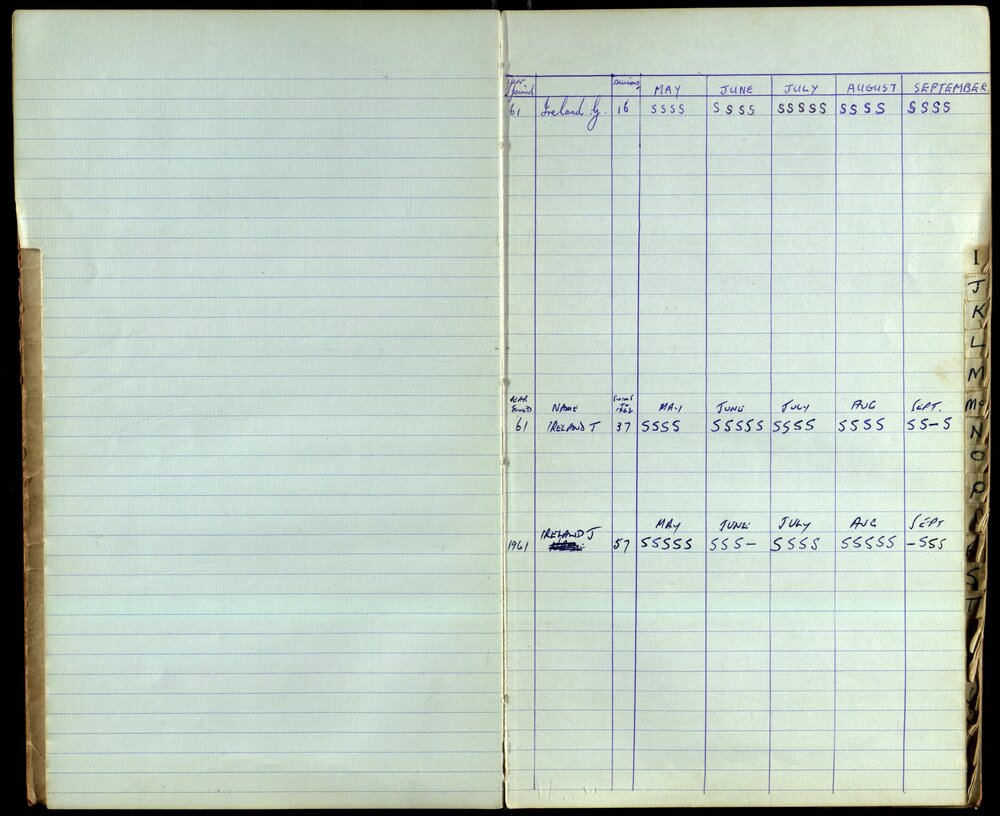 Year Joined Swims MAY JUNE JULY AUGUST SEPTEMBER.
61 Ireland. 16 SSSS SSSS SSSSS SSSS SSSS
YEAR JOINED NAME SWIMS TO 1962 MAY JUNE JULY AUG SEPT.
61 IRELAND J 37 SSSS SSSSS SSSS SSSS SS-S
MAY JUNE JULY AUG SEPT
1961 IRELAND J 57 SSSSS SSS- SSSS SSSSS -SSS
I
J
K
L
M
Mc
N
O
P
R
S
T